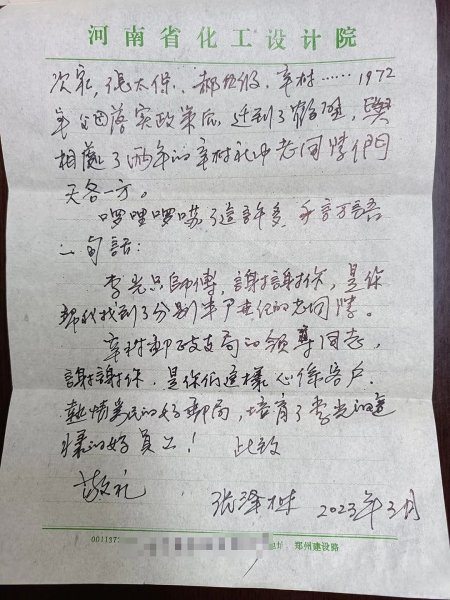 河南省化工设计院
次家，张太保、郝𠀋级、辛村……1972
年父因落实政策后，迁到了鹤壁，與
相處了两年的辛村社中老同學們
天各一方。
啰哩啰嗦了這許多，千言万語
一句話：
李光只師傅，謝謝你，是你
帮我找到了分别半个世纪的老同學。
辛村郵政支局的领導同志，
謝謝你，是你们這樣心係客户，
热情為民的好郵局，培育了李光的這
樣的好員工！ 此致
敬礼
张泽林 2023年3月
001137 地址：郑州建设路